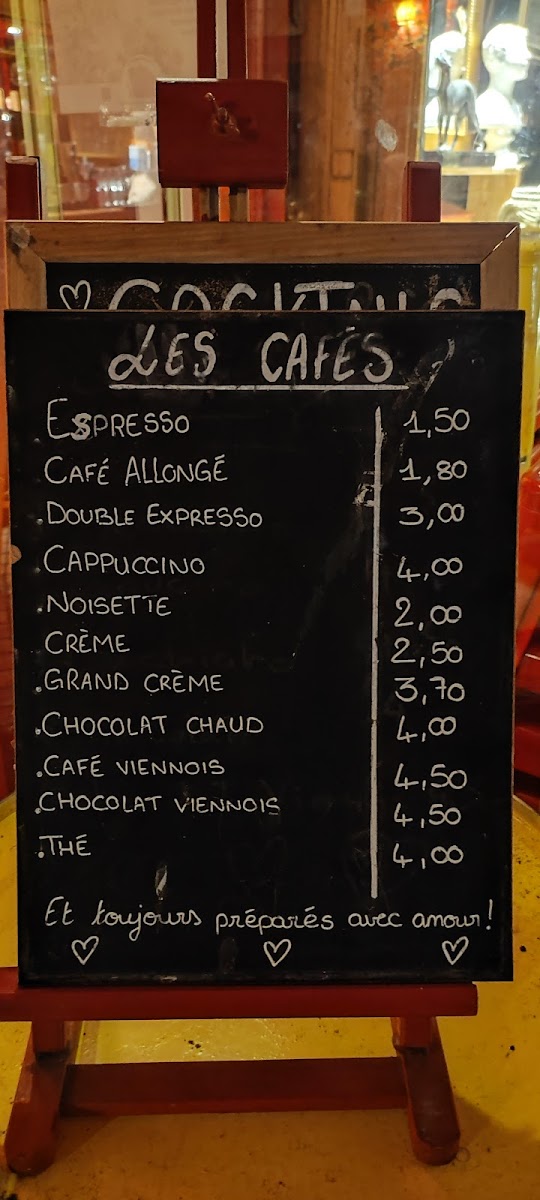 COCKTAILS
LES CAFÉS
ESPRESSO 1,50
CAFÉ ALLONGÉ 1,80
.DOUBLE EXPRESSO 3,00
.CAPPUCCINO 4,00
.NOISETTE 2,00
CRÈME 2,50
.GRAND CRÈME 3,70
.CHOCOLAT CHAUD 4,00
.CAFÉ VIENNOIS 4,50
.CHOCOLAT VIENNOIS 4,50
.THÉ 4,00
Et toujours préparés avec amour!